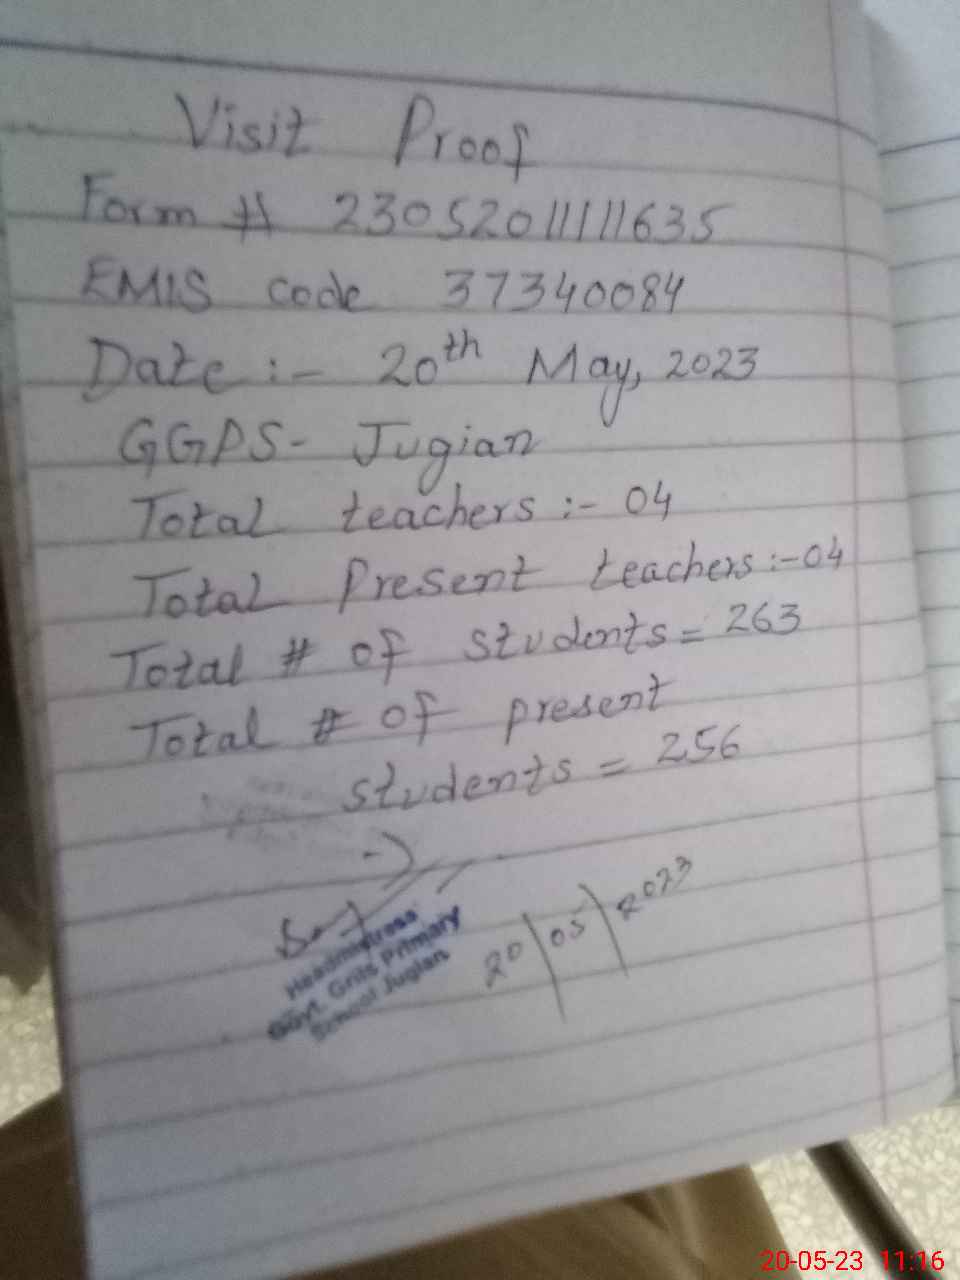 Visit Proof
Form # 23052011111635
EMIS code 37340084
Date :- 20th May, 2023
GGPS- Jugian
Total teachers :- 04
Total Present teachers :- 04
Total # of students = 263
Total # of present
students = 256
20/05/2023
Headmistress
Govt. Grils Primary
School Jugian
20-05-23 11:16